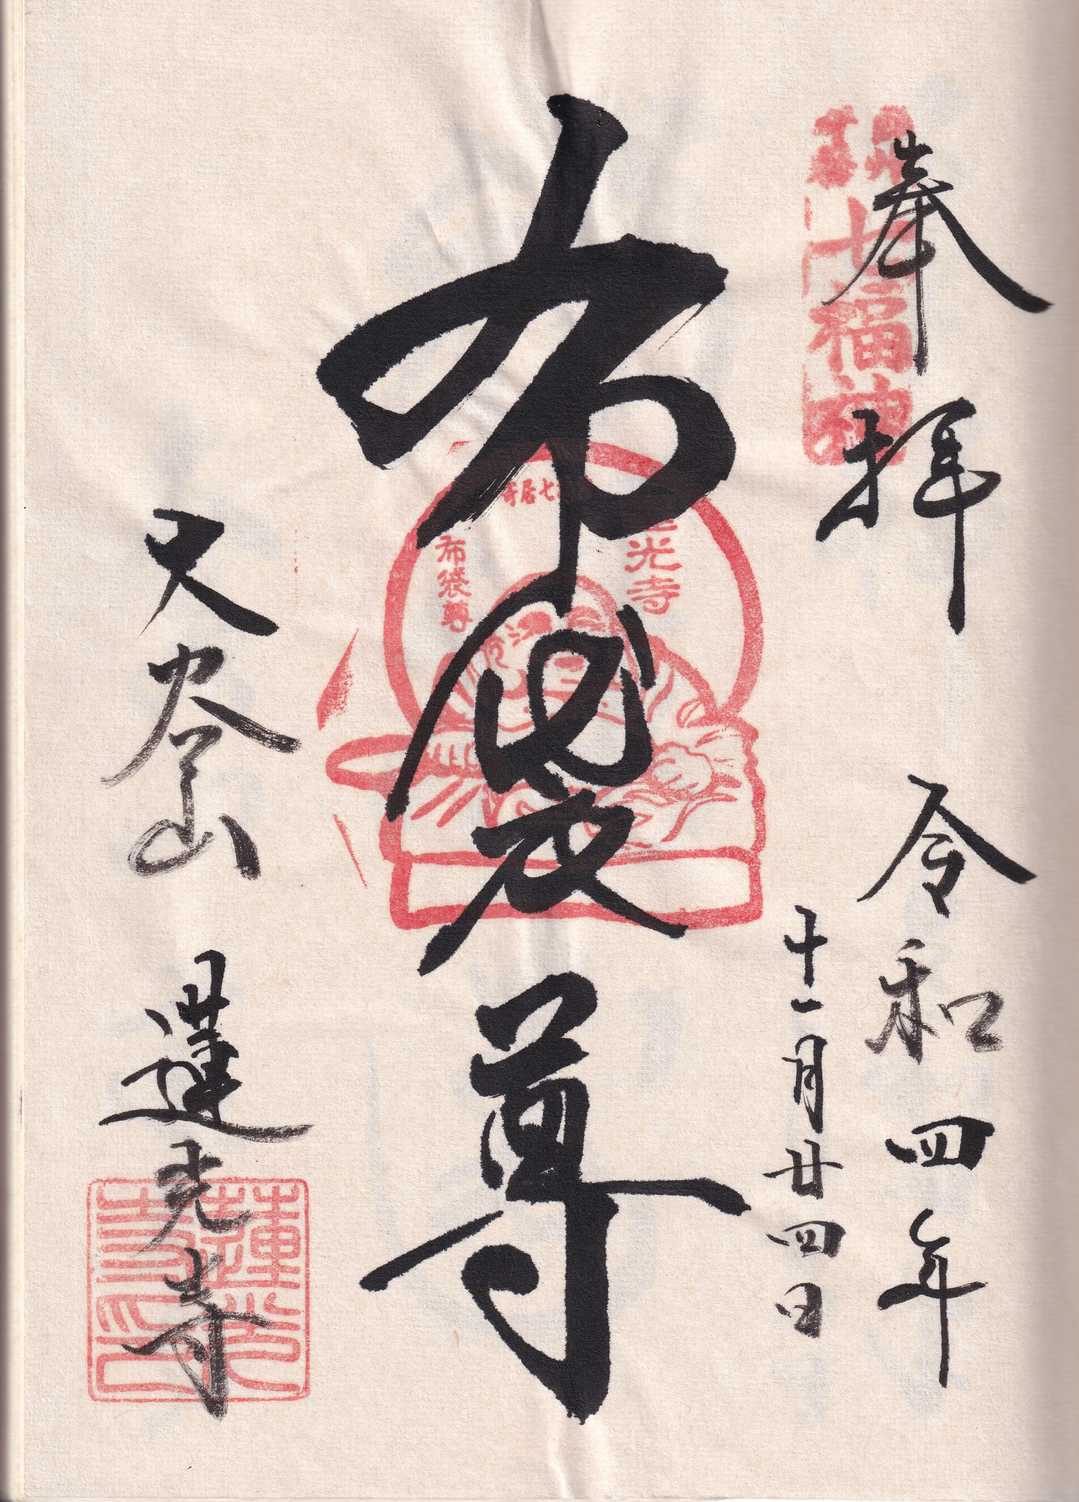 七福神
奉拝 令和四年
十一月廿四日
布袋尊
光寺
布袋尊
山 蓮光寺
蓮光
寺印